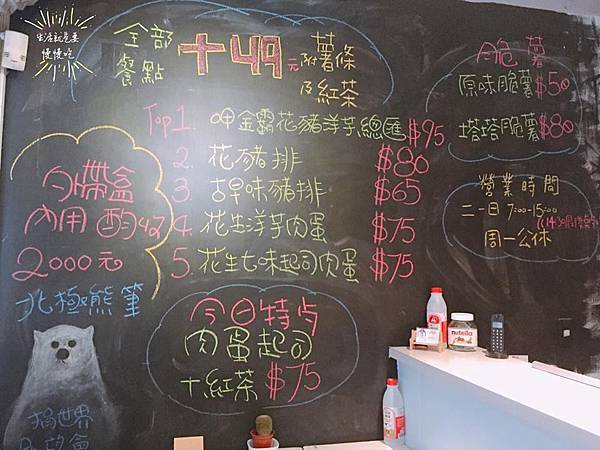 生活就是要
慢慢吃
全部
餐點
+49元
附薯條
及紅茶
Top1. 呷金霸花豬洋芋總匯 $95
2. 花豬排 $80
3. 古早味豬排 $65
4. 花生洋芋肉蛋 $75
5. 花生七味起司肉蛋 $75
脆薯
原味脆薯 $50
塔塔脆薯 $80
營業時間
二-日 7:00-15:00
周一公休
自帶盒
內用
2000元
北極熊筆
今日特点
肉蛋起司
+紅茶 $75
nutella